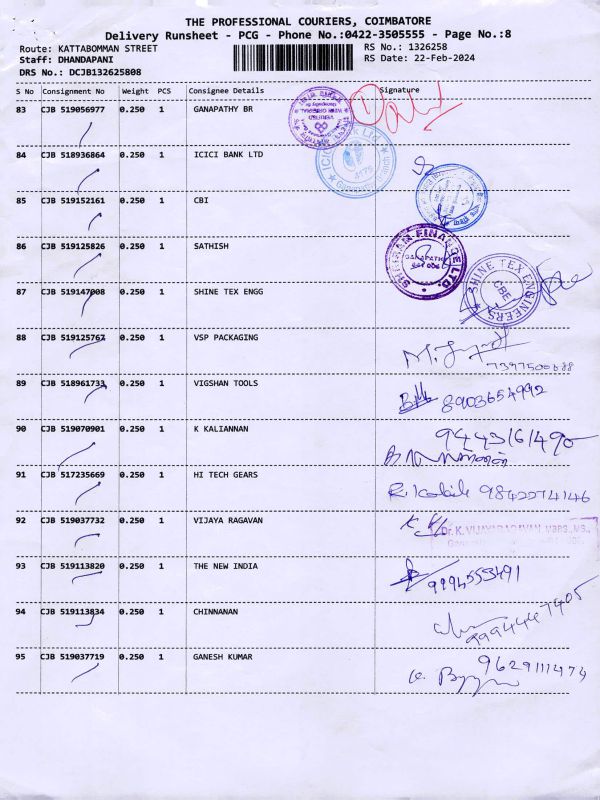 THE PROFESSIONAL COURIERS, COIMBATORE
Delivery Runsheet - PCG - Phone No.:0422-3505555 - Page No.:8
Route: KATTABOMMAN STREET RS No.: 1326258
Staff: DHANDAPANI RS Date: 22-Feb-2024
DRS No.: DCJB132625808
S No Consignment No Weight PCS Consignee Details Signature
83 CJB 519056977 0.250 1 GANAPATHY BR
84 CJB 518936864 0.250 1 ICICI BANK LTD
ICICI BANK LTD
85 CJB 519152161 0.250 1 CBI
86 CJB 519125826 0.250 1 SATHISH
SHRIRAM FINANCE LTD.
GANAPATHY
87 CJB 519147008 0.250 1 SHINE TEX ENGG
SHINE TEX ENGINEERS
CBE
88 CJB 519125767 0.250 1 VSP PACKAGING
7397500688
89 CJB 518961733 0.250 1 VIGSHAN TOOLS
8903654992
90 CJB 519070901 0.250 1 K KALIANNAN
9443161490
91 CJB 517235669 0.250 1 HI TECH GEARS
9842274146
92 CJB 519037732 0.250 1 VIJAYA RAGAVAN
Dr. K. VIJAYARAGAVAN, MBBS., MS.,
93 CJB 519113820 0.250 1 THE NEW INDIA
9994553491
94 CJB 519113834 0.250 1 CHINNANAN
9994447405
95 CJB 519037719 0.250 1 GANESH KUMAR
9629111474